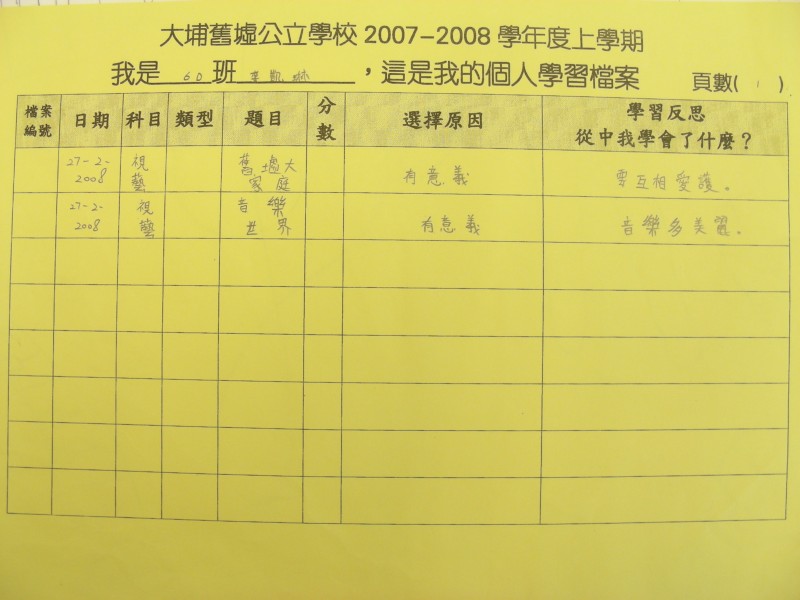 大埔舊墟公立學校 2007-2008 學年度上學期
我是 6D 班 凱琳 ，這是我的個人學習檔案 頁數( 1 )
檔案編號 日期 科目 類型 題目 分數 選擇原因 學習反思 從中我學會了什麼？
27-2-2008 視藝 舊墟大家庭 有意義 要互相愛護。
27-2-2008 視藝 音樂世界 有意義 音樂多美麗。